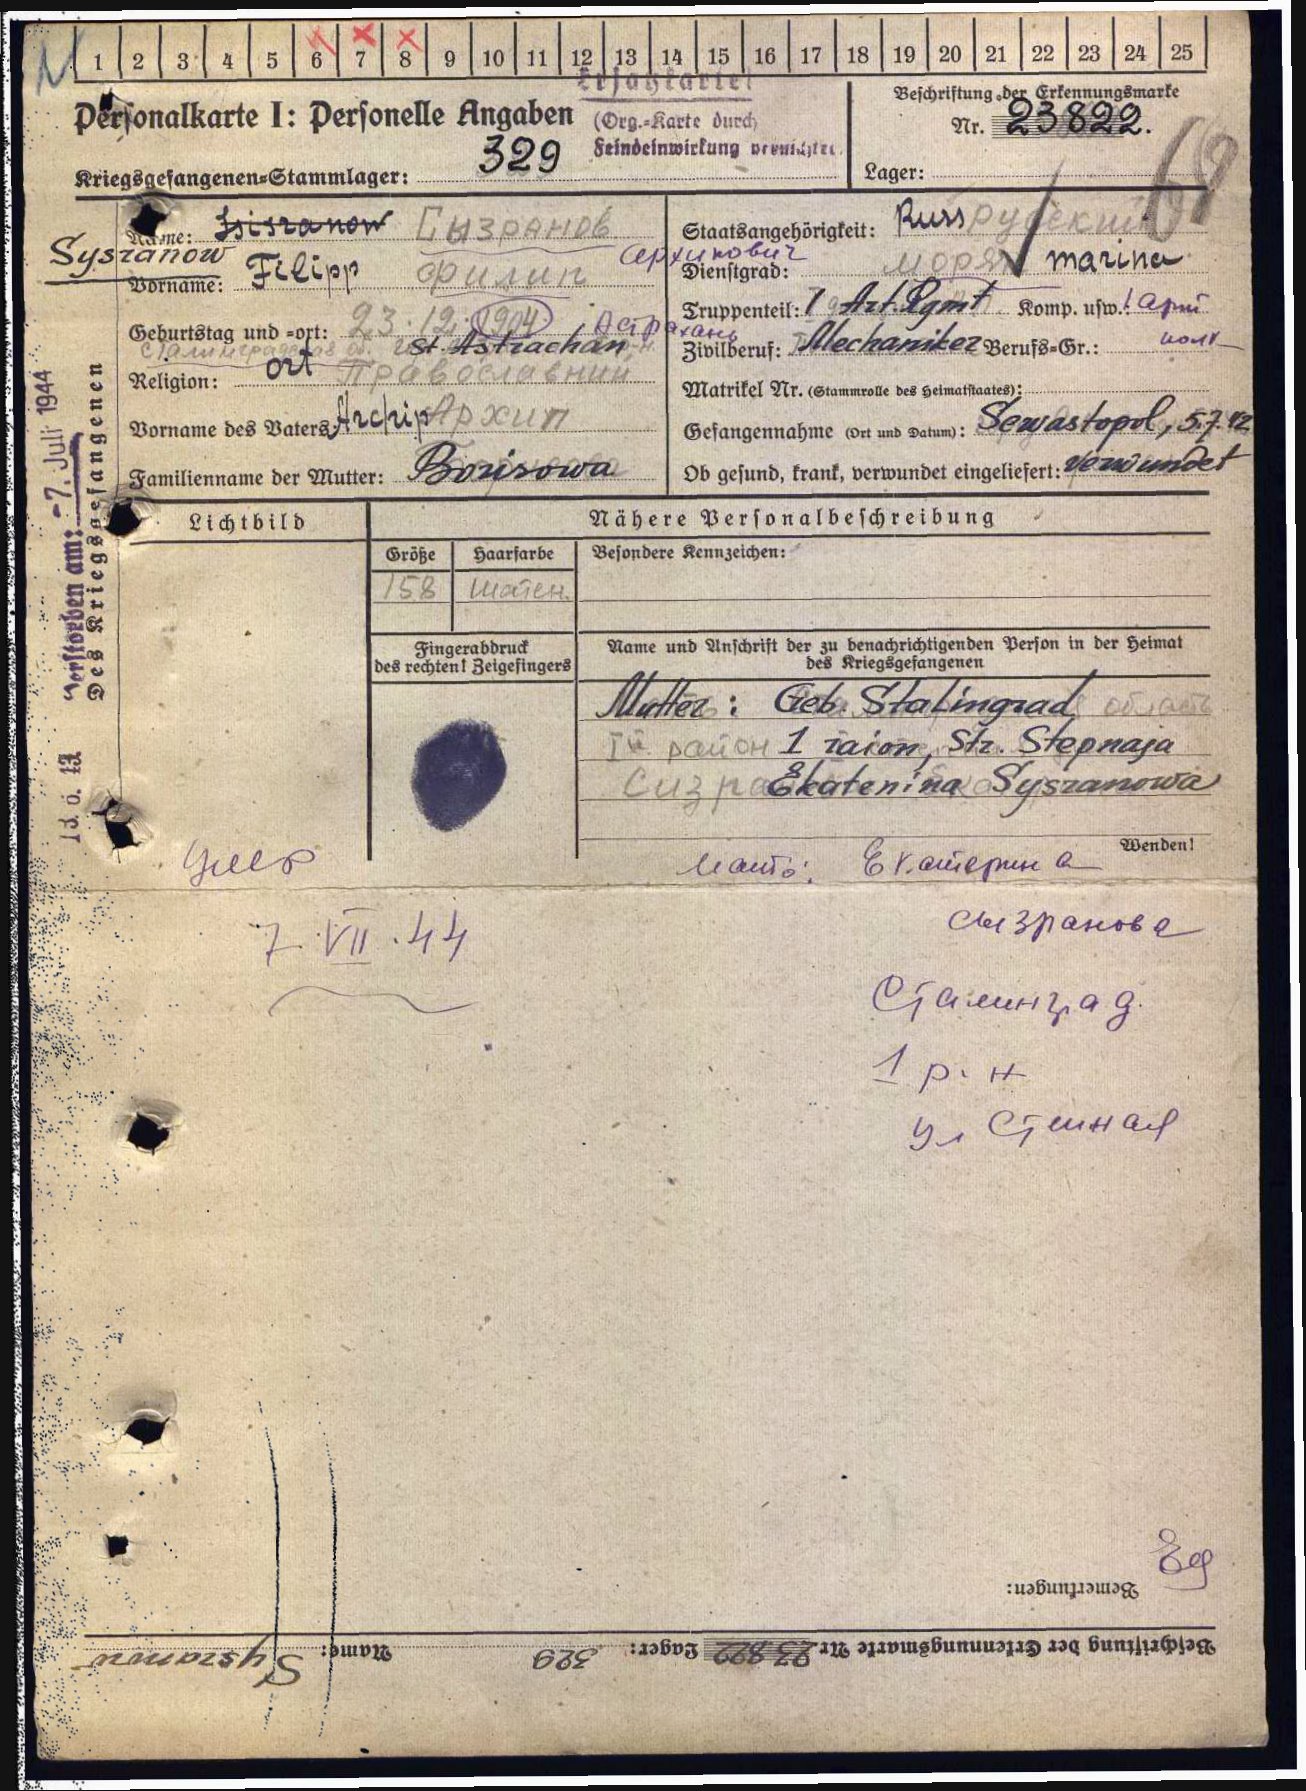 1 2 3 4 5 6 7 8 9 10 11 12 13 14 15 16 17 18 19 20 21 22 23 24 25
Ersatzkarte!
Personalkarte I: Personelle Angaben
(Org.-Karte durch
Feindeinwirkung vernichtet.
Kriegsgefangenen-Stammlager: 329
Beschriftung der Erkennungsmarke
Nr. 23822.
Lager:
68
Name: Isisranow Сызранов
Sysranow
Vorname: Filipp Филип Архипович
Geburtstag und =ort: 23.12.1904 Астрахань
Сталинградская об. St. Astrachan
ort
Religion: Православний
Vorname des Vaters: Archip Архип
Familienname der Mutter: Borisowa
Staatsangehörigkeit: Russ Русский
Dienstgrad: моряк marina
Truppenteil: 1 Art. Rgmt Komp. usw.: 1 арт
полк
Zivilberuf: Mechaniker Berufs=Gr.:
Matrikel Nr. (Stammrolle des Heimatstaates):
Gefangennahme (Ort und Datum): Sewastopol, 5.7.42
Ob gesund, krank, verwundet eingeliefert: verwundet
Verstorben am: -7. Juli 1944
Des Kriegsgefangenen
Lichtbild
Nähere Personalbeschreibung
Größe Haarfarbe Besondere Kennzeichen:
158 шатен.
Fingerabdruck
des rechten! Zeigefingers
Name und Anschrift der zu benachrichtigenden Person in der Heimat
des Kriegsgefangenen
Mutter: Geb. Stalingrad область
район 1 raion, Str. Stepnaja
Ekatenina Sysranowa
Wenden!
умер
7.VII.44
Мать: Екатерина
Сызранова
Сталинград.
1 р-н
ул Степная
Ед
Bemerkungen:
Beschriftung der Erkennungsmarke Nr 23822 Lager: 329 Name: Sysranow